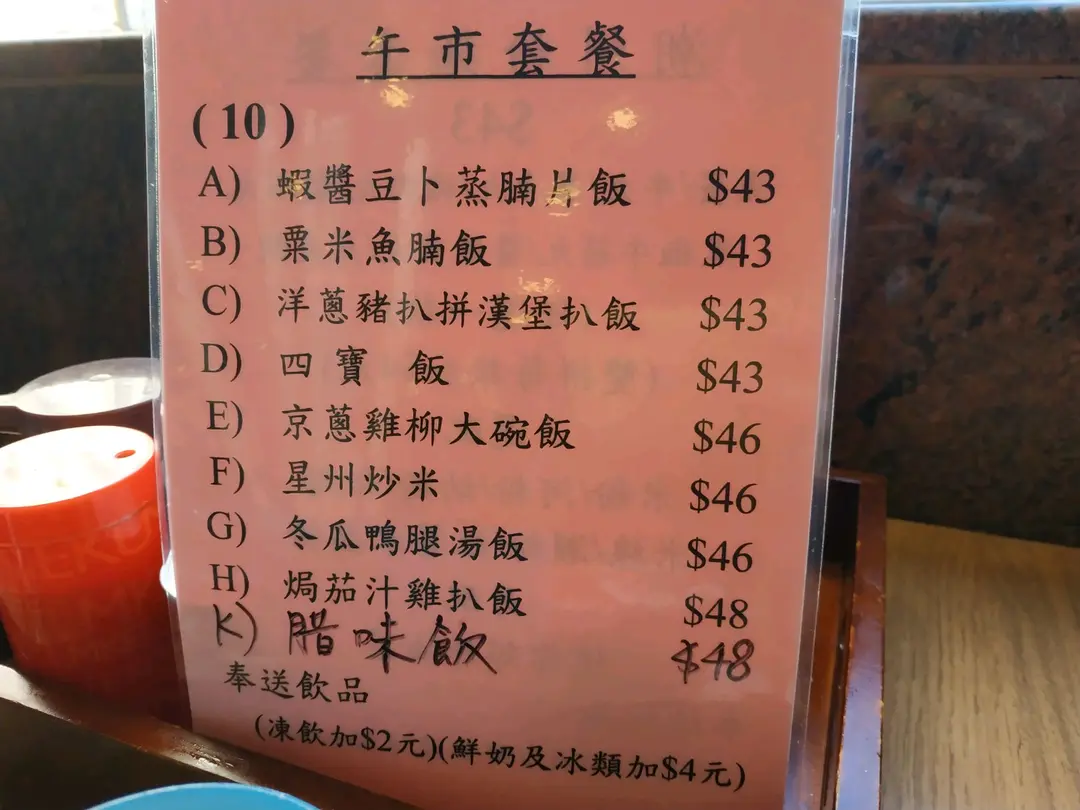 午市套餐
(10)
A) 蝦醬豆卜蒸腩片飯 $43
B) 粟米魚腩飯 $43
C) 洋蔥豬扒拼漢堡扒飯 $43
D) 四寶 飯 $43
E) 京蔥雞柳大碗飯 $46
F) 星州炒米 $46
G) 冬瓜鴨腿湯飯 $46
H) 焗茄汁雞扒飯 $48
K) 腊味飯 $48
奉送飲品
(凍飲加$2元)(鮮奶及冰類加$4元)